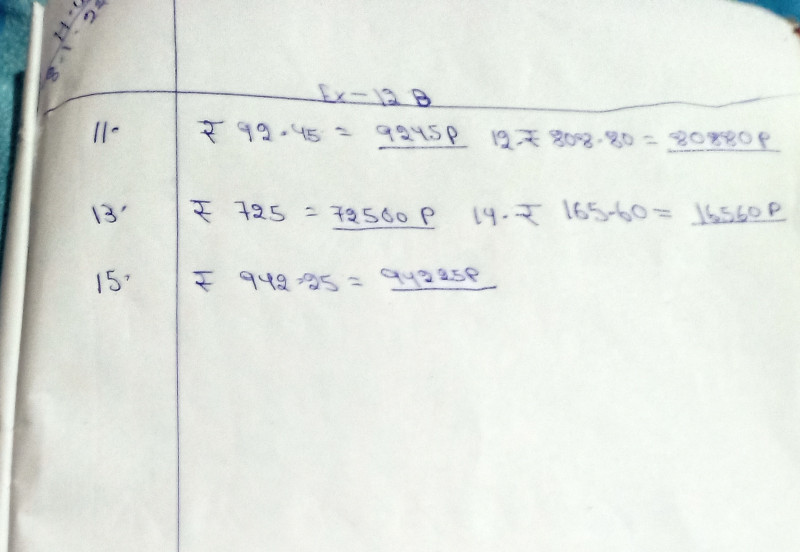 Ex - 12 B
11. ₹ 92.45 = 9245P 12. ₹ 808.80 = 80880P
13. ₹ 725 = 72500 P 14. ₹ 165.60 = 16560P
15. ₹ 942.25 = 94225P